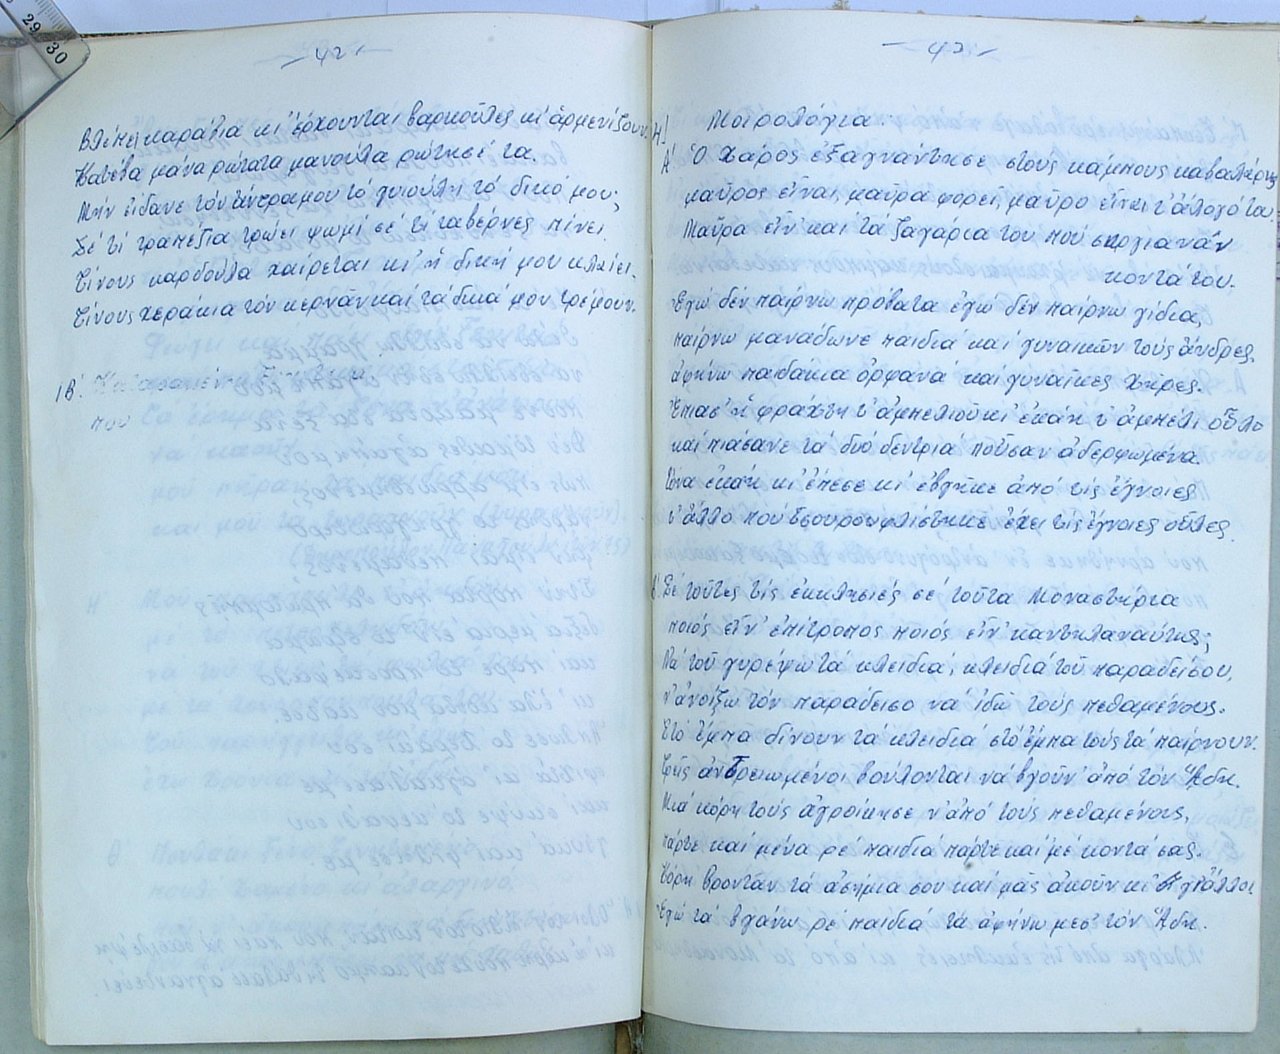 42
Βλέπει καράβια κι' ἔρχουνται βαρκοῦλες κι' ἀρμενίζουν.
Κατέβα μάνα ρώτατα μανούλα ρώτησέ τα.
Μήν εἴδανε τόν ἄντραμου τό γυιούλη τό δικό μου;
Σέ τί τραπέζια τρώει ψωμί σέ τί ταβέρνες πίνει.
Τίνους καρδούλα χαίρεται κι' ἡ δική μου κλαίει.
Τίνους χεράκια τόν κερνᾶν καί τά δικά μου τρέμουν.
ΙΒ'.
που
Η! Μοιρολόγια.
Α' Ὁ Χάρος ἐξαγνάντησε στούς κάμπους καβαλάρης
μαῦρος εἶναι, μαῦρα φορεῖ, μαῦρο εἶναι τ' ἄλογό του,
Μαῦρα εἶν' καί τά ζαγάρια του πού
κοντά του.
Ἐγώ δέν παίρνω πρόβατα ἐγώ δέν παίρνω γίδια,
παίρνω μανάδωνε παιδιά καί γυναικῶν τούς ἄνδρες.
ἀφήνω παιδάκια ὀρφανά καί γυναίκες χῆρες.
Ἔπιασ' ἡ φράχτη τ' ἀμπελιοῦ κι' ἐκάη τ' ἀμπέλι οὗλο
καί πιάσανε τά δυό δεντριά ποὖσαν ἀδερφωμένα.
Τὄνα ἐκάη κι' ἔπεσε κι' ἐβγῆκε ἀπό τίς ἔγνοιες
τ' ἄλλο πού τσουρουφλίστηκε ἔχει τίς ἔγνοιες οὗλες.
Β'. Σέ τοῦτες τίς ἐκκλησιές σέ τοῦτα Μοναστήρια
ποιός εἶν' ἐπίτροπος ποιός εἶν' καντηλανάφτης;
Νά τοῦ γυρέψω τά κλειδιά, κλειδιά τοῦ παραδείσου,
ν' ἀνοίξω τόν παράδεισο νά ἰδῶ τούς πεθαμένους.
Στό ἔμπα δίνουν τά κλειδιά στό ἔμπα τούς τά παίρνουν.
Τρεῖς ἀντρειωμένοι βούλονται νά βγοῦν' ἀπό τόν Ἅδη.
Μιά κόρη τούς ἀγροίκησε ν' ἀπό τούς πεθαμένους,
πάρτε καί μένα ρέ παιδιά πάρτε καί μέ κοντά σας.
Κόρη βροντᾶν τά ἀσήμια σου καί μᾶς ἀκοῦν κι'
Ἐγώ τά βγάνω ρέ παιδιά τά ἀφήνω μέσ' τόν Ἅδη.